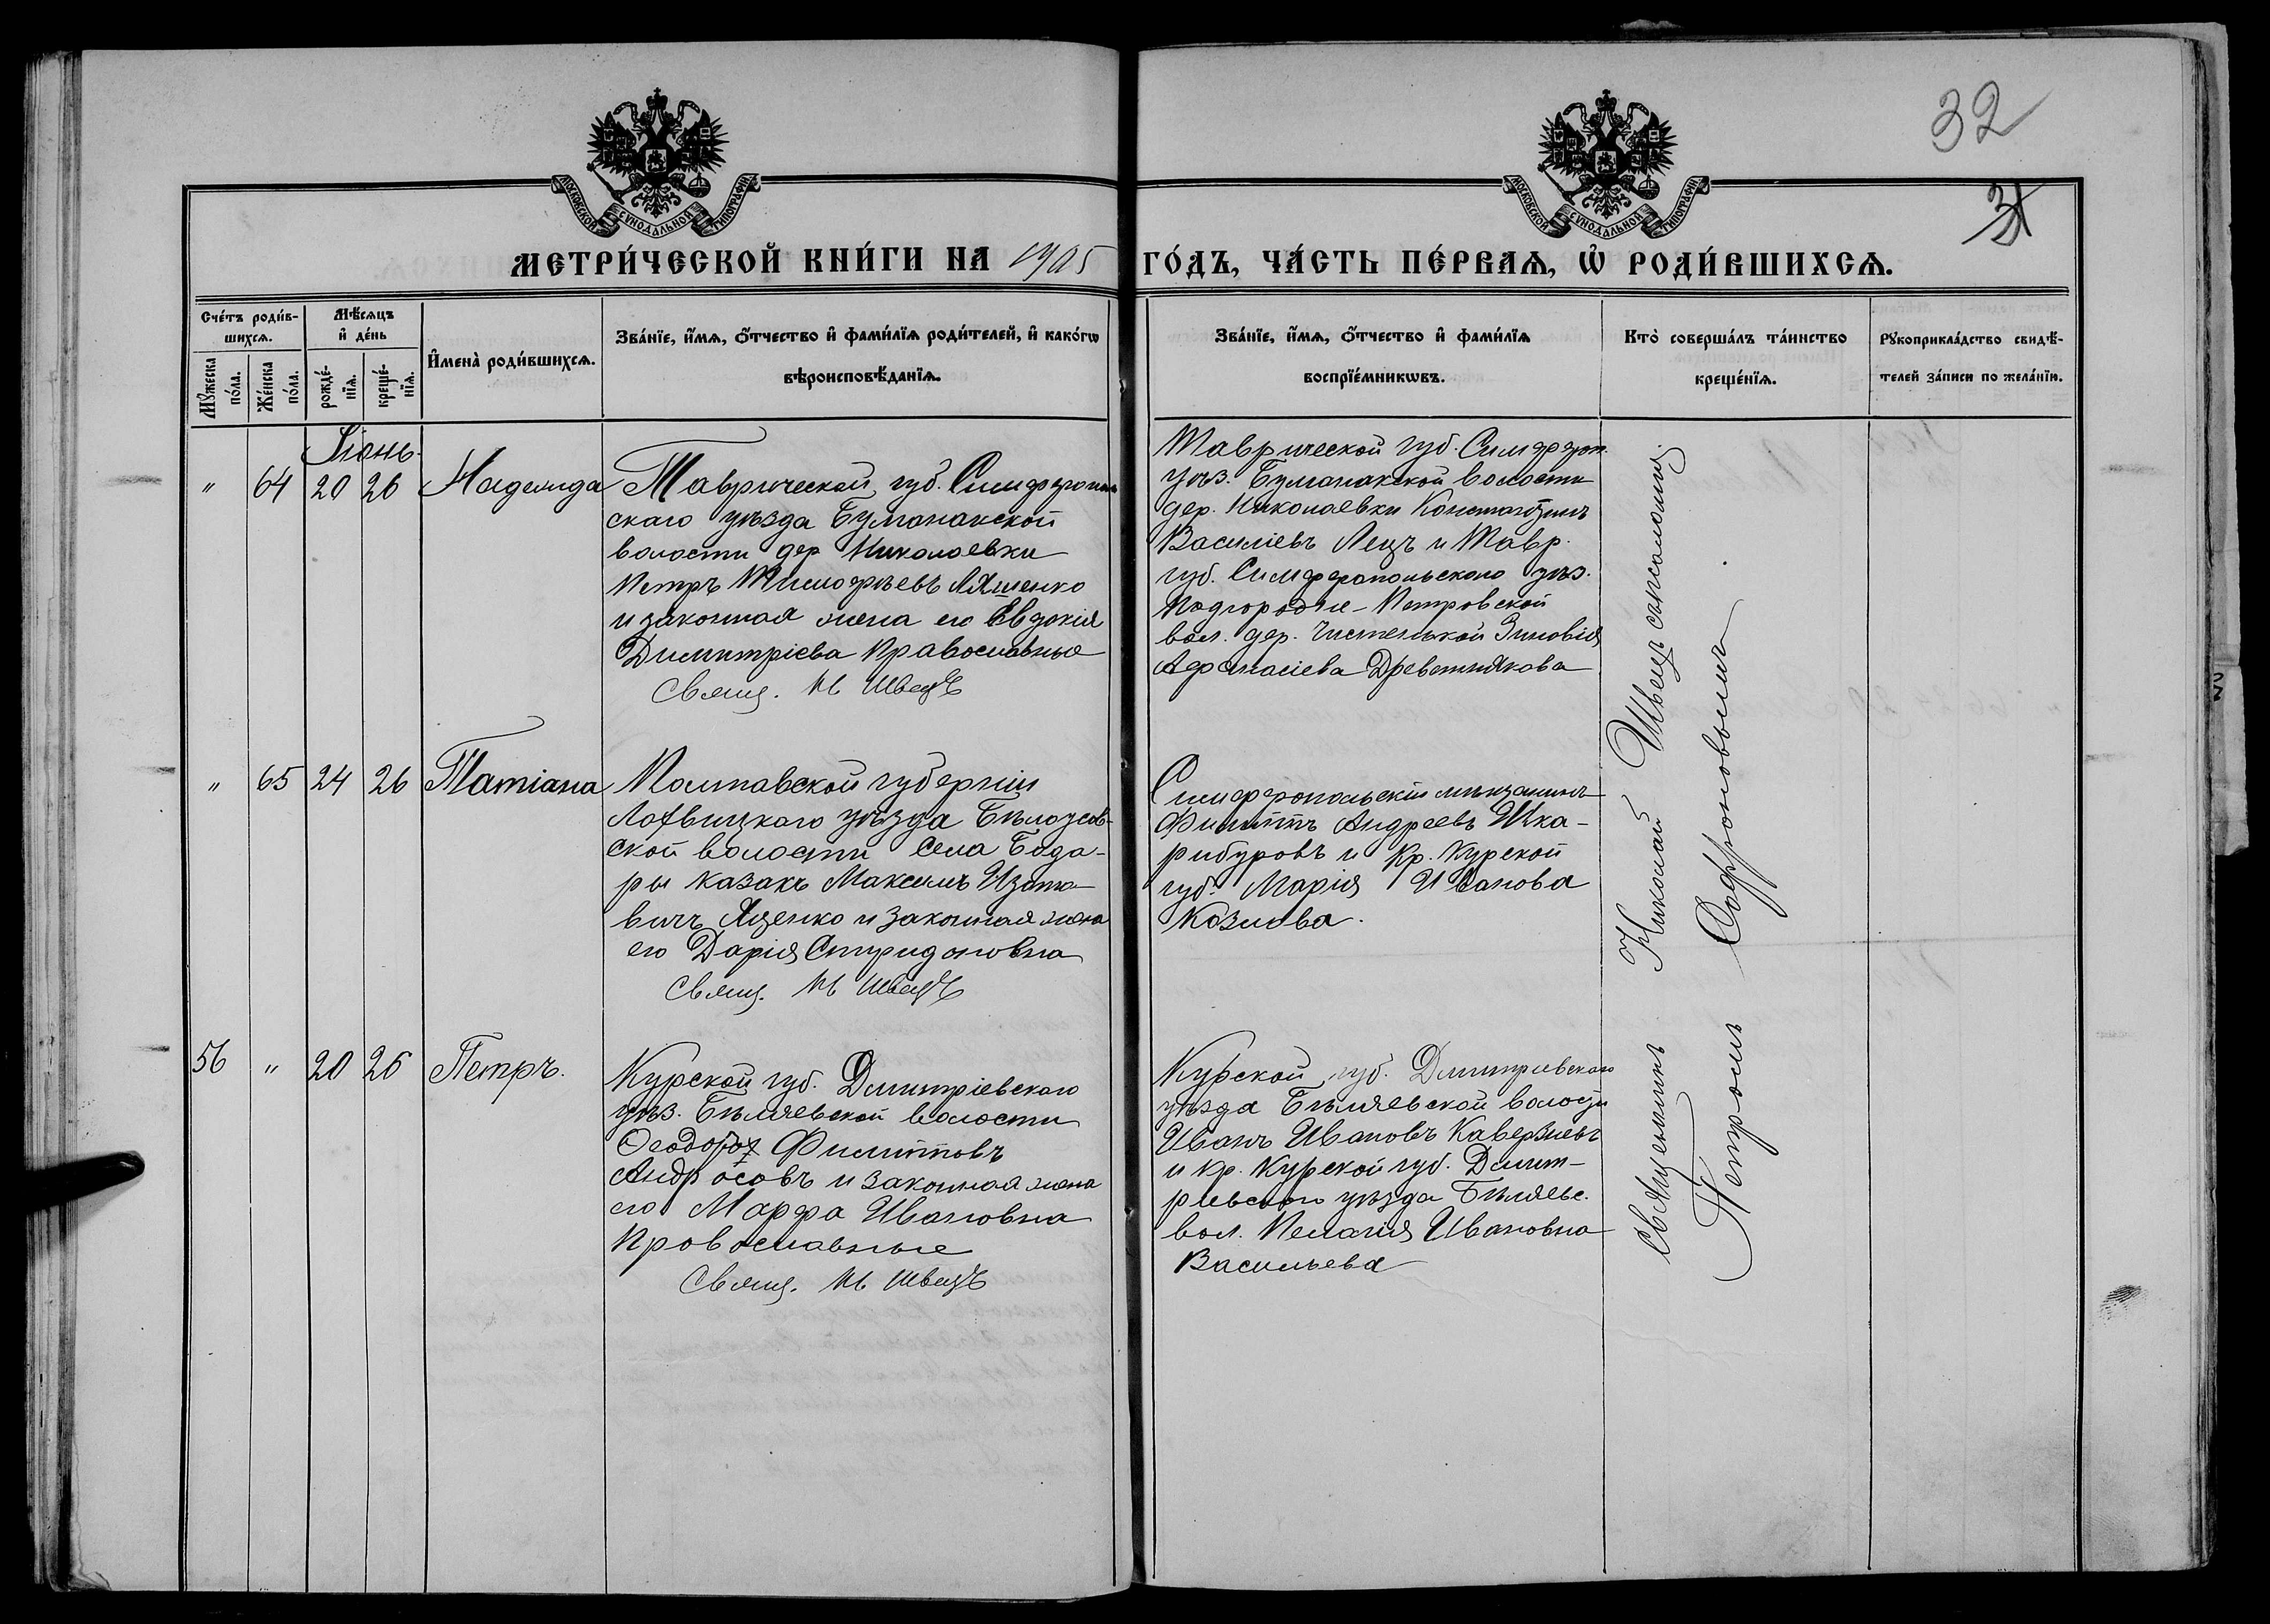 32
31
МОСКОВСКОЙ СѴНОДАЛЬНОЙ ТИПОГРАФІИ
МОСКОВСКОЙ СѴНОДАЛЬНОЙ ТИПОГРАФІИ
МЕТРИ́ЧЕСКОЙ КНИ́ГИ НА 1905 ГО́ДЪ, ЧА́СТЬ ПЕ́РВАѦ, Ѡ РОДИ́ВШИХСѦ.
Сче́тъ роди́в-
шихсѧ.
Мѣ́сѧцъ
и҆ де́нь
Мꙋ́жеска
по́ла.
Же́нска
по́ла.
рожде́-
нїѧ.
креще́-
нїѧ.
И҆мена̀ роди́вшихсѧ.
Зва́нїе, и҆́мѧ, ѻ҆́тчество и҆ фами́лїѧ роди́телей, и҆ како́гѡ
вѣроисповѣ́данїѧ.
Зва́нїе, и҆́мѧ, ѻ҆́тчество и҆ фами́лїѧ
воспрїе́мникѡвъ.
Кто̀ соверша́лъ та́инство
креще́нїѧ.
Рꙋкоприкла́дство свидѣ́-
телей за́писи по жела́нїю.
Іюнь
" 64 20 26 Надежда
Таврической губ. Симферополь
скаго уѣзда Булганакской
волости дер Николаевки
Петръ Тимофѣевъ Ляшенко
и законная жена его Евдокія
Димитріева Православные
Свящ. Н Швецъ
Таврической губ. Симфероп.
уѣз. Булганакской волости
дер. Николаевки Константинъ
Василіевъ Лецъ и Тавр.
губ. Симферопольскаго уѣз.
Подгородне-Петровской
вол. дер. Чистенькой Зиновія
Афанасіева Древетнякова
" 65 24 26 Татіана
Полтавской губерніи
Лохвицкаго уѣзда Бѣлоусов-
ской волости села Бода-
ры казакъ Максимъ
вичъ Яценко и законная жена
его Дарія Спиридоновна
Свящ. Н Швецъ
Симферопольскій мѣщанинъ
Филиппъ Андреевъ Шка-
рибуровъ и Кр. Курской
губ. Марія Иванова
Козлова.
56 " 20 26 Петръ.
Курской губ. Дмитріевскаго
уѣз. Бѣляевской волости
Ѳеодоръ Филипповъ
Андросовъ и законная жена
его Марфа Ивановна
Православные
Свящ. Н Швецъ
Курской губ. Дмитріевскаго
уѣзда Бѣляевской волости
Иванъ Ивановъ Каверзневъ
и кр. Курской губ. Димит-
ріевскаго уѣзда Бѣляевс.
вол. Пелагія Ивановна
Васильева
Священникъ Николай Швецъ съ псаломщ.
Петромъ Софроновымъ.